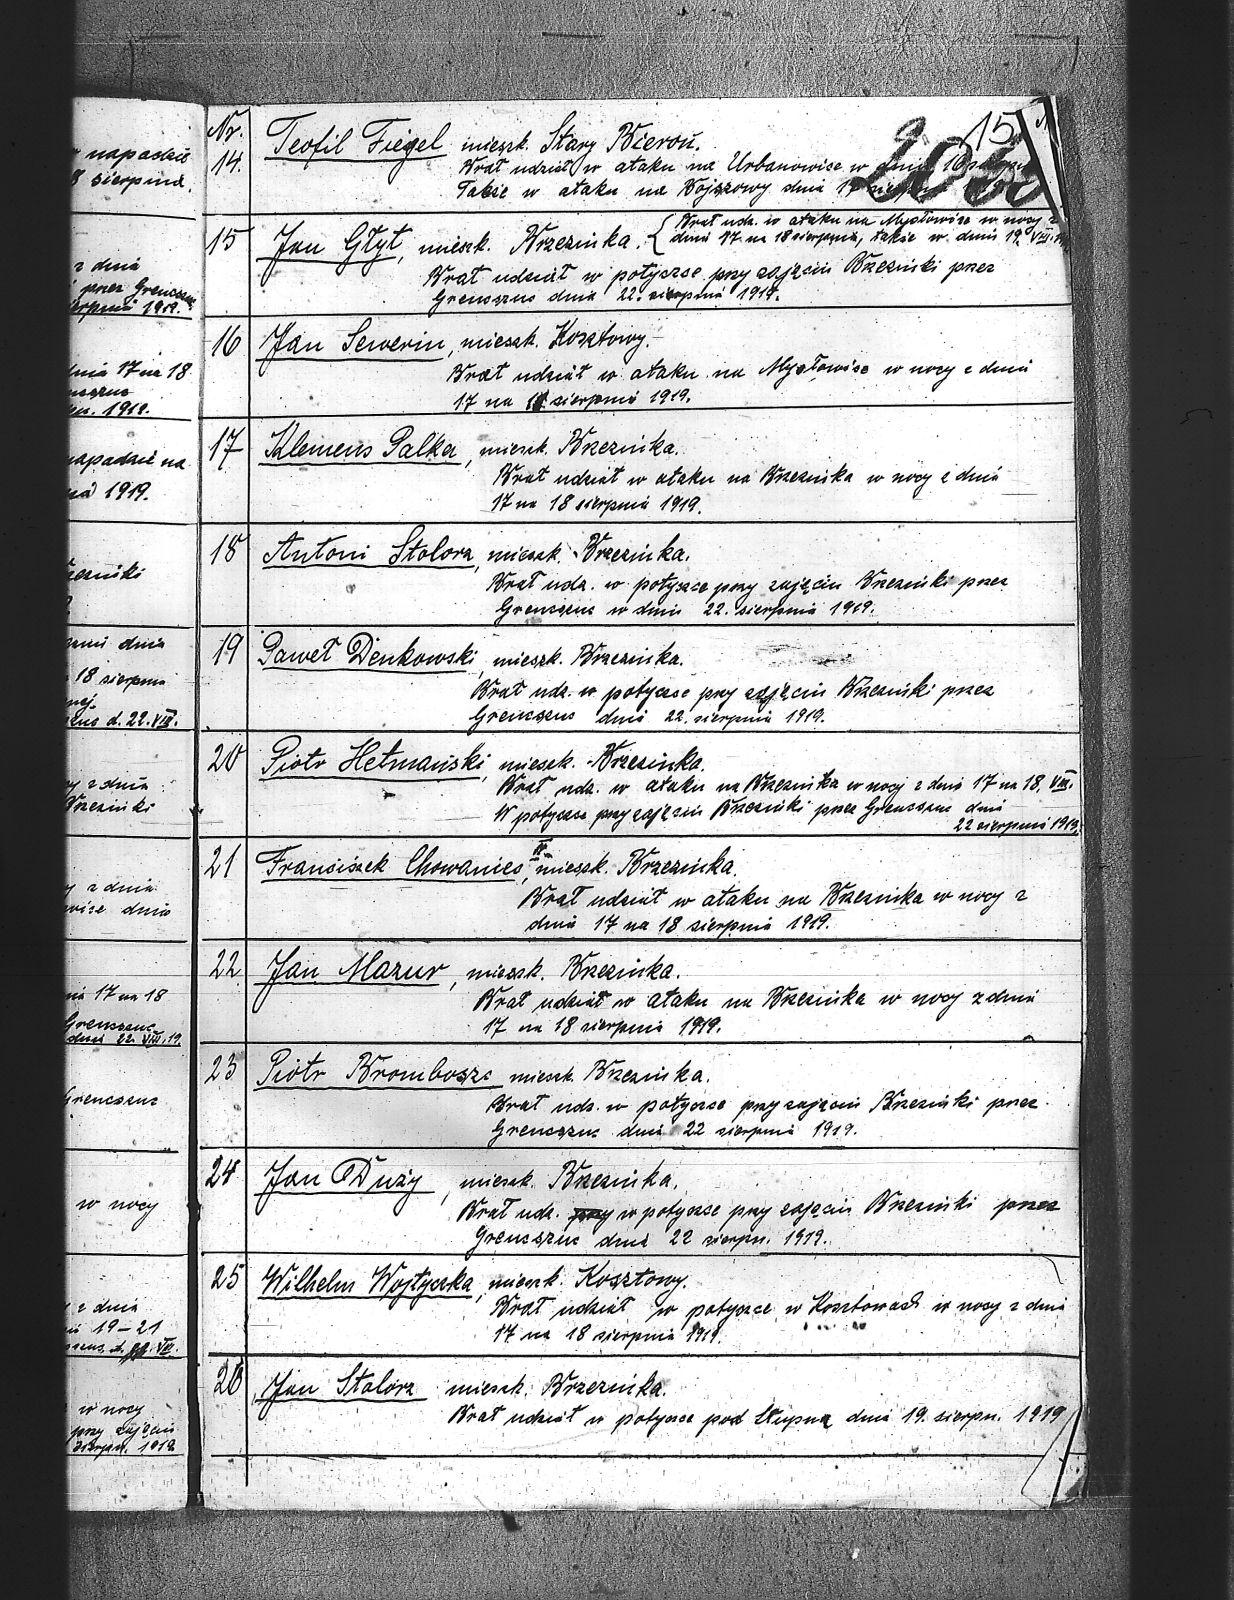 napadzie
8 sierpnia.
z dnia
przez Grencszuc
sierpnia 1919.
dnia 17 na 18
1919.
napadzie na
1919.
dnia
18 sierpnia
d. 22. VIII.
z dnia
Brzezinki
z dnia
dnia
17 na 18
Grenszuc
dnia 22. VIII. 19.
Grencszuc
w nocy
z dnia
19-21
VIII.
w nocy
przy zajęciu
sierpn. 1919
Nr. 15
14. Teofil Fiegel mieszk. Stary Bieruń.
Brał udział w ataku na Urbanowice w dniu
Także w ataku na Wojszowy dnia 17 sierpnia
15 Jan Głyt, mieszk. Brzezinka. { Brał udz. w ataku na Mysłowice w nocy z
dnia 17 na 18 sierpnia, także w dniu 19. VIII.
Brał udział w potyczce przy zajęciu Brzezinki przez
Grencszuc dnia 22. sierpnia 1919.
16 Jan Sewerin, mieszk. Kosztowy.
Brał udział w ataku na Mysłowice w nocy z dnia
17 na 18 sierpnia 1919.
17 Klemens Palka, mieszk. Brzezinka.
Brał udział w ataku na Brzezinka w nocy z dnia
17 na 18 sierpnia 1919.
18 Antoni Stolorz, mieszk. Brzezinka.
Brał udz. w potyczce przy zajęciu Brzezinki przez
Grencszuc w dniu 22. sierpnia 1919.
19 Paweł Denkowski, mieszk. Brzezinka.
Brał udz. w potyczce przy zajęciu Brzezinki przez
Grencszuc dnia 22. sierpnia 1919.
20 Piotr Hetmański, mieszk. Brzezinka.
Brał udz. w ataku na Brzezinka w nocy z dnia 17 na 18. VIII.
W potyczce przy zajęciu Brzezinki przez Grencszuc dnia
22 sierpnia 1919.
21 Franciszek Chowaniec II, mieszk. Brzezinka.
Brał udział w ataku na Brzezinka w nocy z
dnia 17 na 18 sierpnia 1919.
22 Jan Mazur, mieszk. Brzezinka.
Brał udział w ataku na Brzezinka w nocy z dnia
17 na 18 sierpnia 1919.
23 Piotr Brombosz mieszk. Brzezinka.
Brał udz. w potyczce przy zajęciu Brzezinki przez
Grencszuc dnia 22 sierpnia 1919.
24 Jan Duży, mieszk. Brzezinka.
Brał udz. przy w potyczce przy zajęciu Brzezinki przez
Grencszuc dnia 22 sierpn. 1919.
25 Wilhelm Wojtyczka, mieszk. Kosztowy.
Brał udział w potyczce w Kosztowach w nocy z dnia
17 na 18 sierpnia 1919.
26 Jan Stolorz mieszk. Brzezinka.
Brał udział w potyczce pod Słupną dnia 19. sierpn. 1919